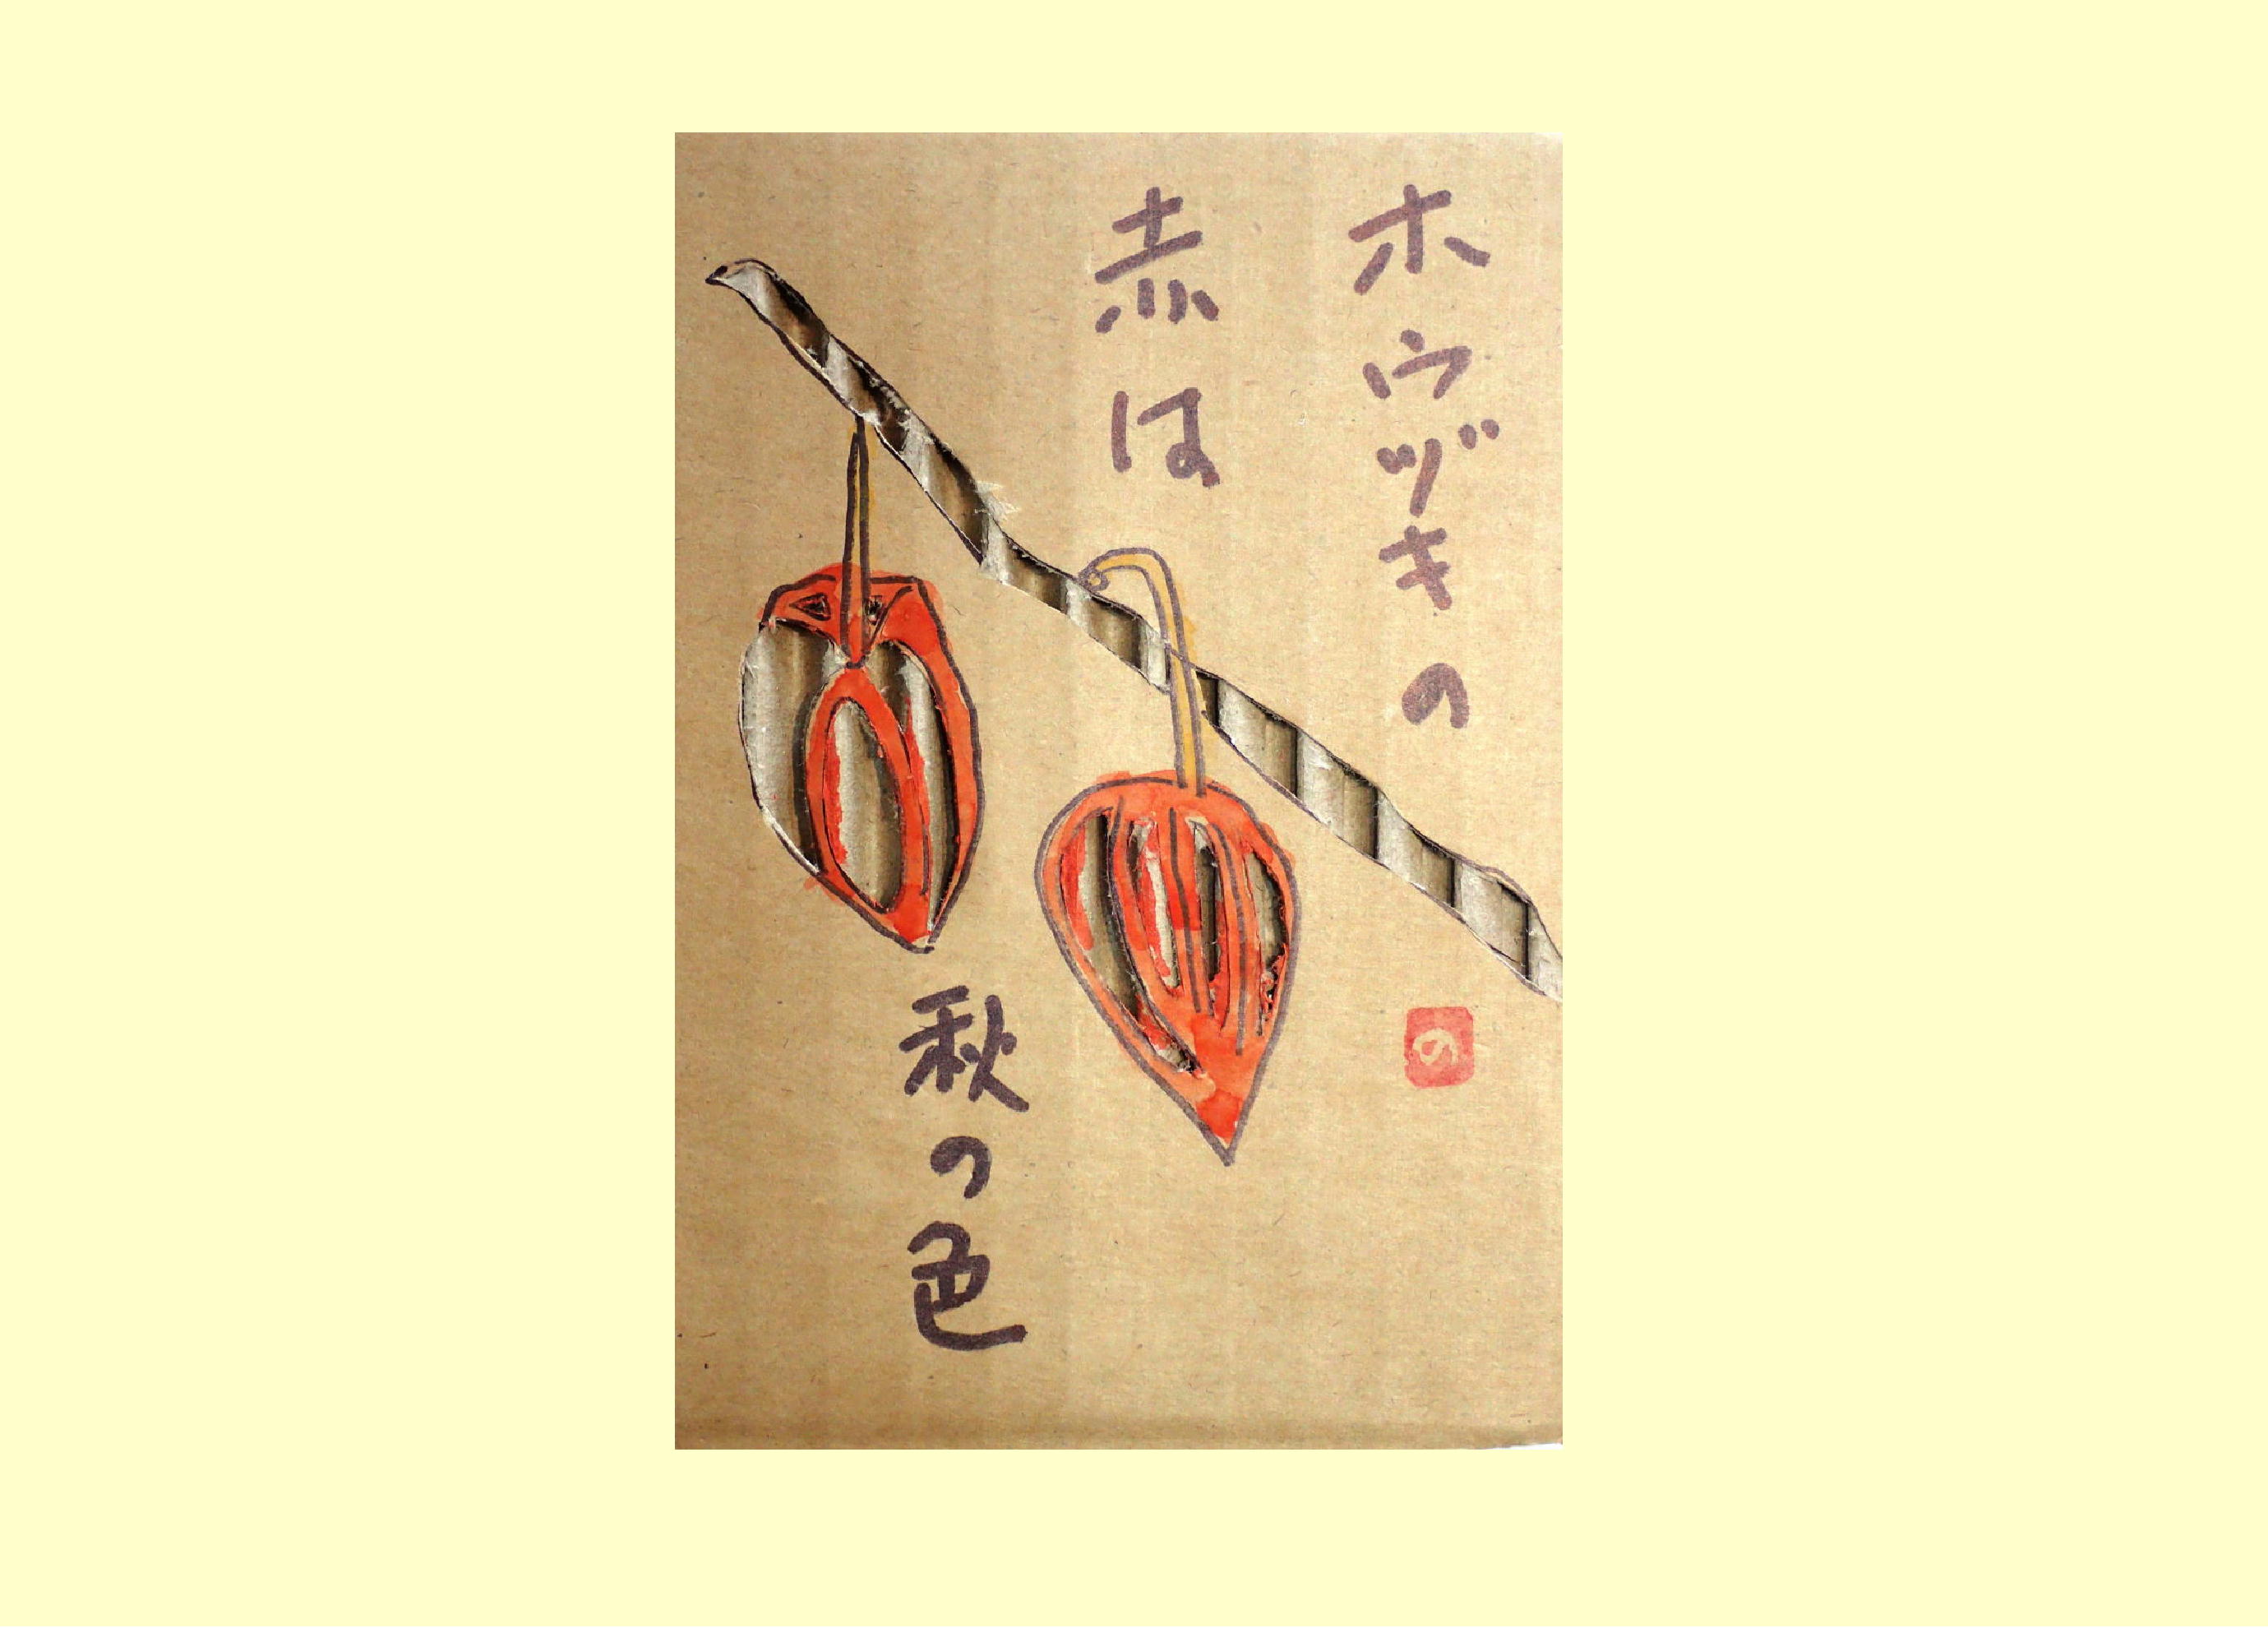 ホウヅキの
赤は
秋の色
の